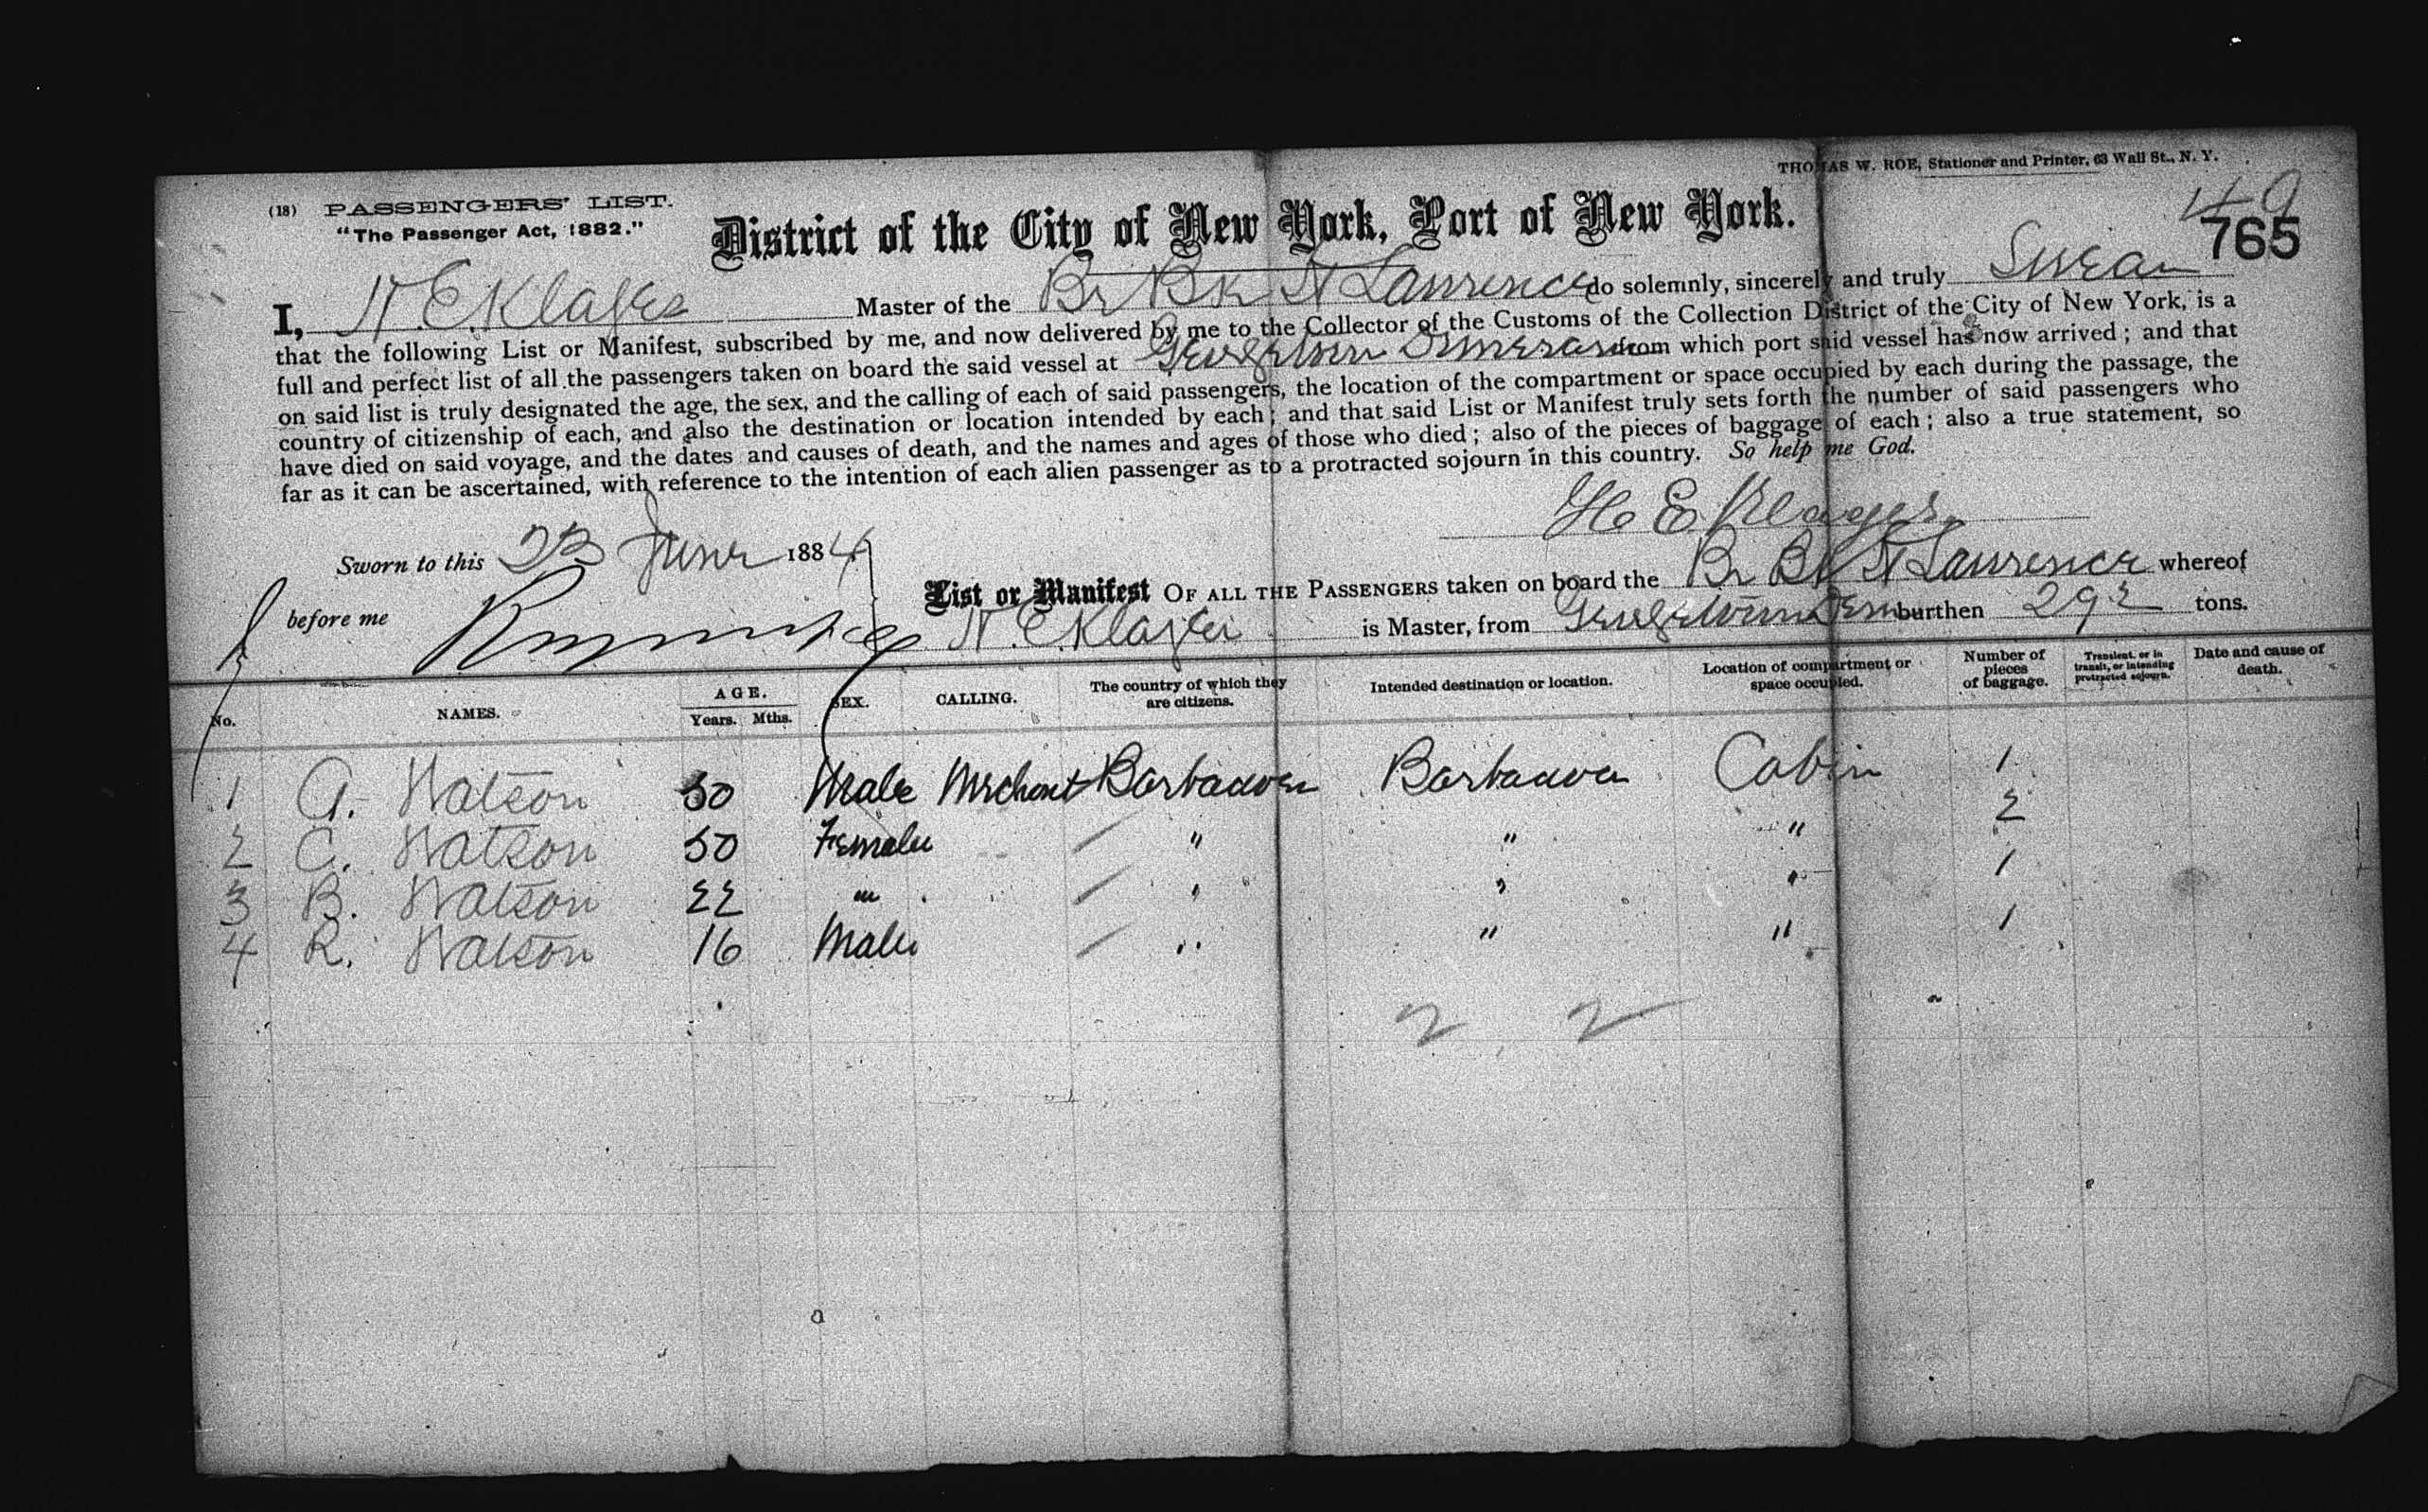 THOMAS W. ROE, Stationer and Printer, 63 Wall St., N. Y.
(18) PASSENGERS' LIST.
49
"The Passenger Act, 1882."
District of the City of New York, Port of New York.
765
I, H. E. Klages Master of the Br Bk St Lawrence do solemnly, sincerely and truly Swear
that the following List or Manifest, subscribed by me, and now delivered by me to the Collector of the Customs of the Collection District of the City of New York, is a
full and perfect list of all the passengers taken on board the said vessel at Georgetown Demerara from which port said vessel has now arrived; and that
on said list is truly designated the age, the sex, and the calling of each of said passengers, the location of the compartment or space occupied by each during the passage, the
country of citizenship of each, and also the destination or location intended by each; and that said List or Manifest truly sets forth the number of said passengers who
have died on said voyage, and the dates and causes of death, and the names and ages of those who died; also of the pieces of baggage of each; also a true statement, so
far as it can be ascertained, with reference to the intention of each alien passenger as to a protracted sojourn in this country. So help me God.
H E Klages
Sworn to this 23 June 1884
before me
List or Manifest OF ALL THE PASSENGERS taken on board the Br Bk St Lawrence whereof
H. E. Klages is Master, from Georgetown Dem burthen 292 tons.
No. NAMES. AGE. Years. Mths. SEX. CALLING. The country of which they are citizens. Intended destination or location. Location of compartment or space occupied. Number of pieces of baggage. Transient, or in transit, or intending protracted sojourn. Date and cause of death.
1 A. Watson 50 Male Merchant Barbadoes Barbadoes Cabin 1
2 C. Watson 50 Female " " " 2
3 B. Watson 22 " " " " 1
4 R. Watson 16 Male " " " 1
2 2